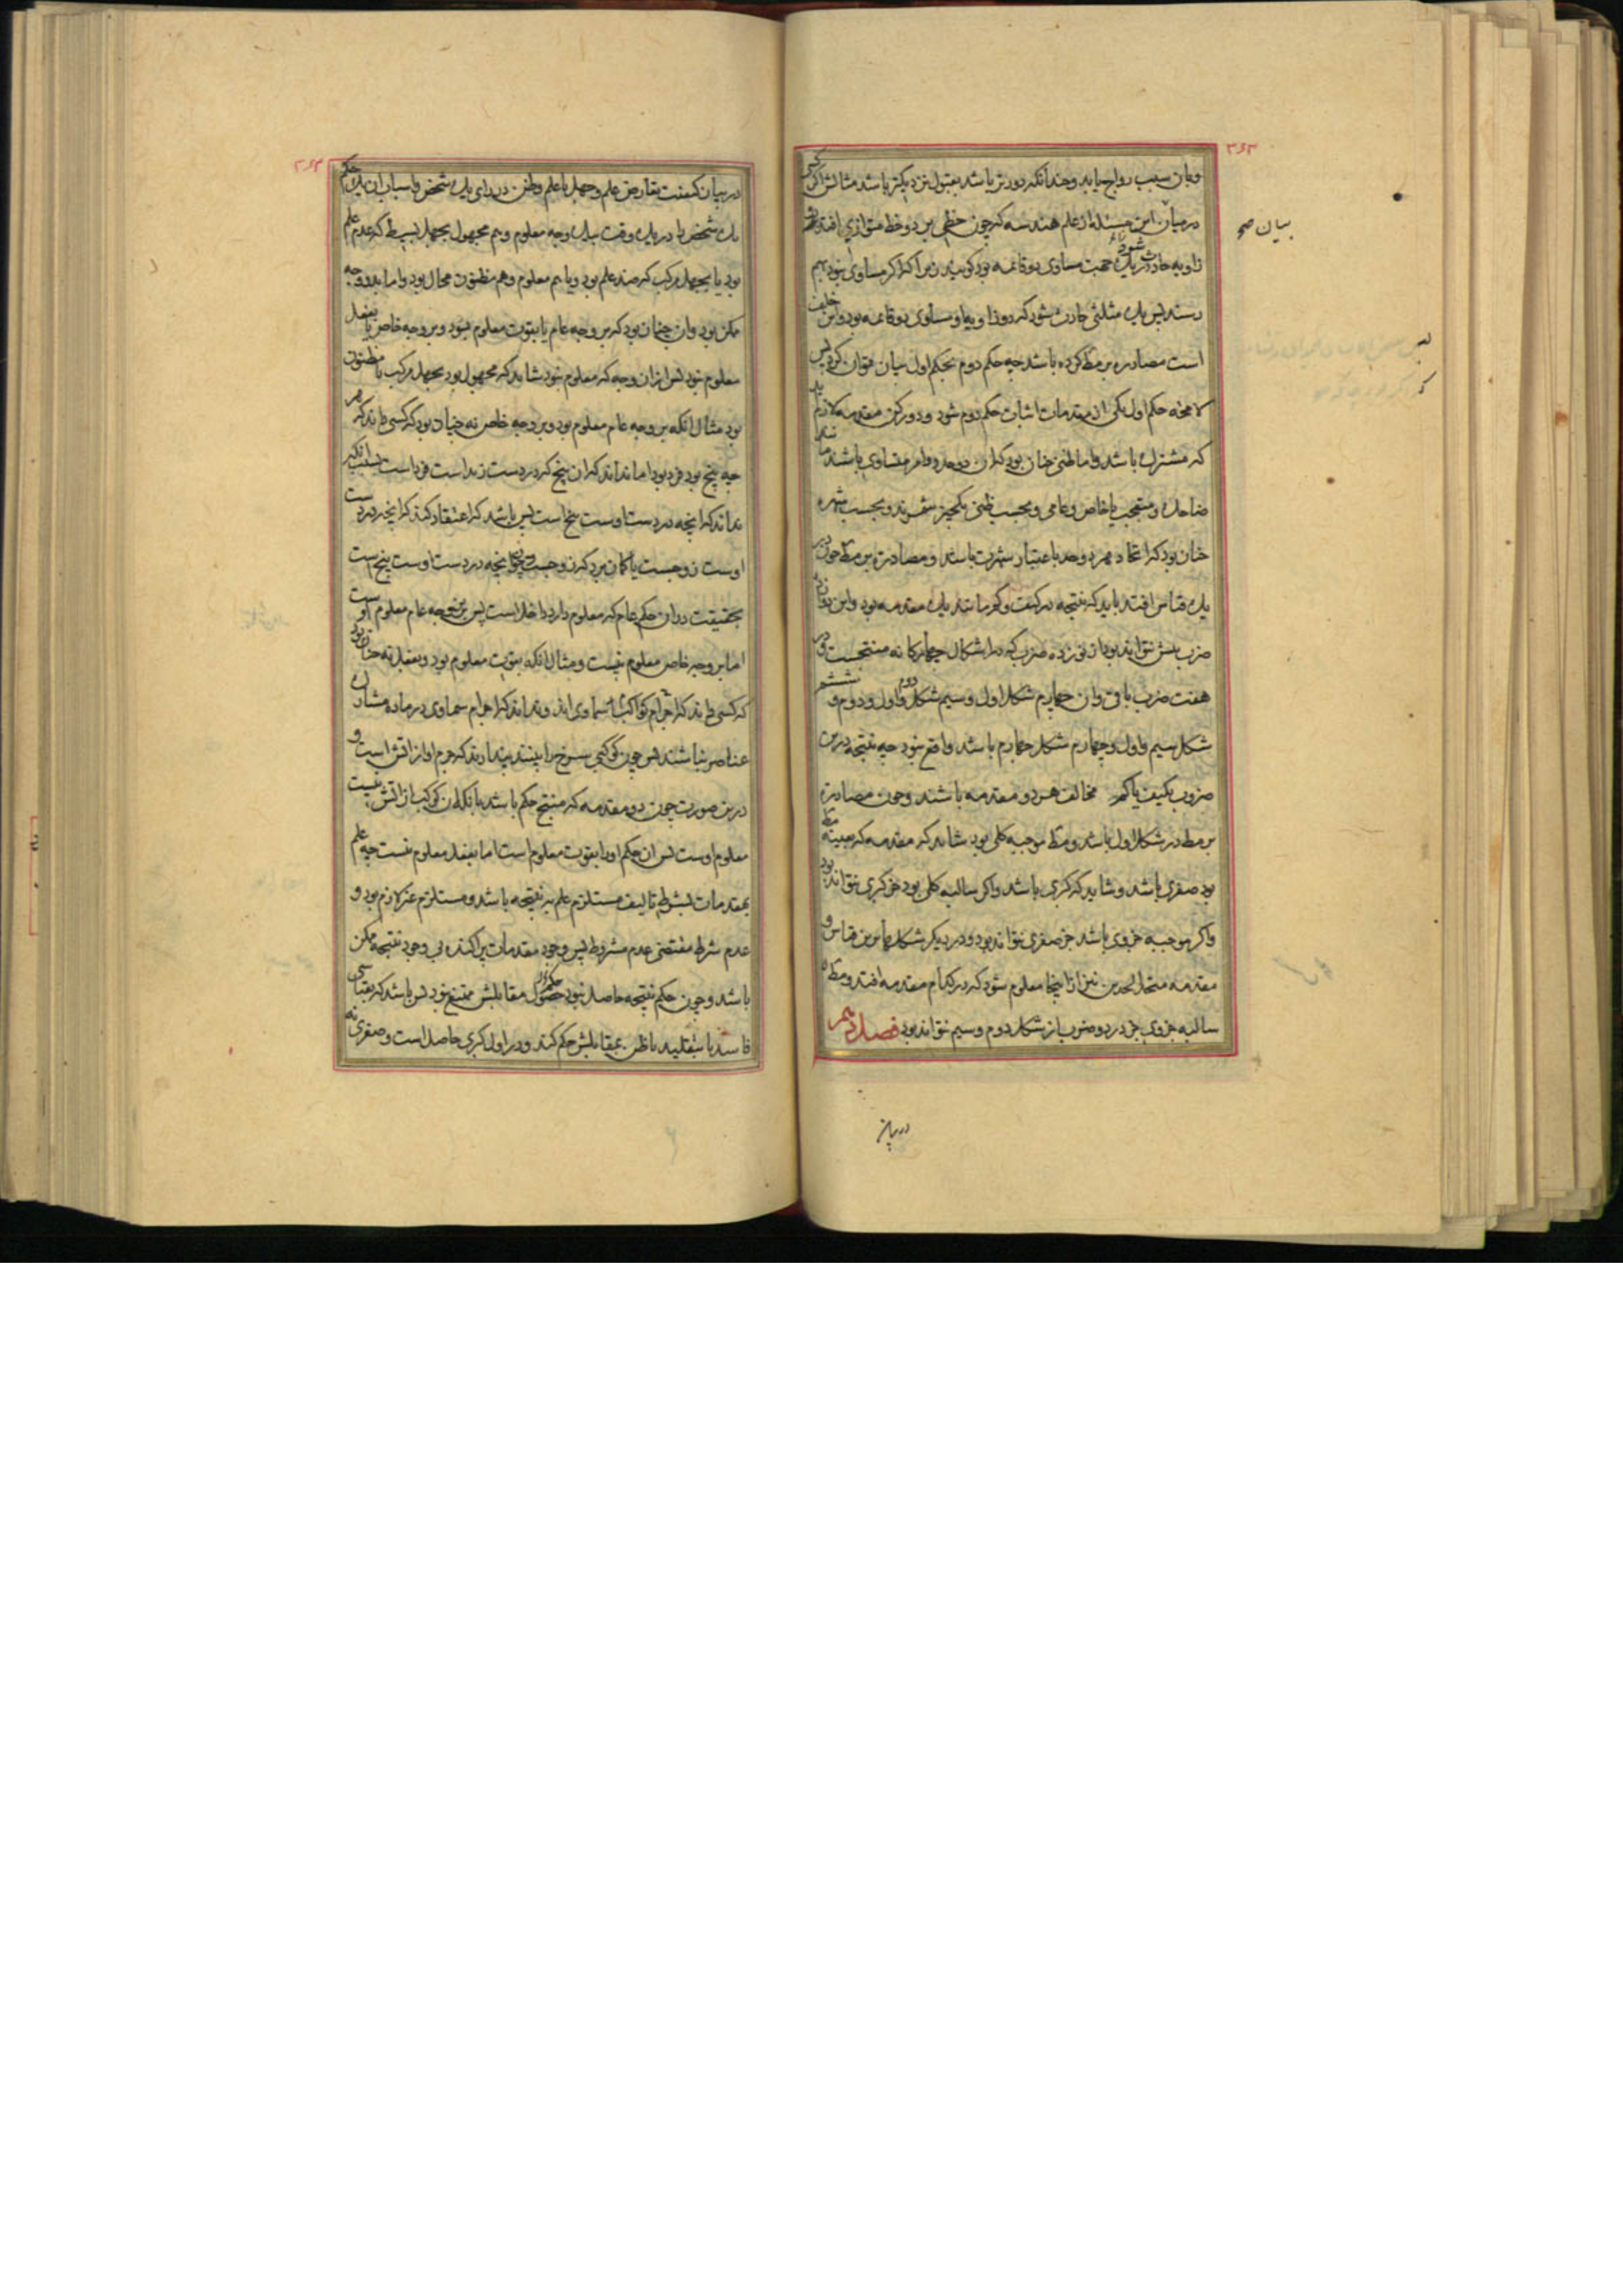 ۳۶۳
وبان سبب رواج یابد وچندانکه دورتر باشد بقبول نزدیکتر باشد مثالش اکر کسی
در بیان این مسئله از علم هندسه که چون خطی بر دو خط متوازی افتد دو
زاویه حادث شود در یک جهت مساوی دو قائمه بود کوید زیرا که اکر مساوی نبود بهم
رسند پس یک مثلثی حادث شود که دو زاویه او مساوی دو قائمه بود واین خلف
است مصادره بر مط کرده باشد چه حکم دوم بحکم اول بیان توان کرد پس
لا محاله حکم اول یکی از مقدمات اثبات حکم دوم شود و دو رکن مقدمه لازم
که مشترک باشد واما ظنی چنان بود که این دو حد در وامر متساوی باشند
ضاحک و متعجب یا خاص وعامی وبحسب ظن یکچیز شمرند وبحسب شهره
چنان بود که اتحاد هر دو حد باعتبار شهرت باشد ومصادره بر مط چون در
یک قیاس افتد باید که نتیجه در کیف وکم مانند یک مقدمه بود واین در
ضرب بیش نتواند بود از نوزده ضرب که در اشکال چهارکانه منتجست و در
هفت ضرب باقی وان چهارم شکل اول وسیم شکل دوم واول ودوم وششم
شکل سیم واول وچهارم شکل چهارم باشد واقع نبود چه نتیجه درین
ضروب بکیف یا کم مخالف هر دو مقدمه باشند وچون مصادره
بر مط در شکل اول باشد ومط موجبه کلی بود شاید که مقدمه که بعینه مط
بود صغری باشد وشاید که کبری باشد واکر سالبه کلی بود جز کبری نتواند بود
واکر موجبه جزوی باشد جز صغری نتواند بود ودر دیکر شکلها برین قیاس و
مقدمه متحد الحدین نیز از اینجا معلوم شود که در کدام مقدمه افتد ومط
سالبه جزوی جز در دو ضرب از شکل دوم وسیم نتواند بود فصل دهم
بیان صح
در بیان
۳۶۴
در بیان کیفیت تعارض علم وجهل یا علم وظن در رای یک شخص واسباب ان یک حکم
یک شخص را در یک وقت بیک وجه معلوم وهم مجهول بجهل بسیط که عدم علم
بود یا بجهل مرکب که ضد علم بود ویا هم معلوم وهم مظنون محال بود واما بدو وجه
ممکن بود وان چنان بود که بر وجه عام یا بقوت معلوم بود وبر وجه خاص یا بفعل
معلوم نبود پس ازان وجه که معلوم نبود شاید که مجهول بود بجهل مرکب یا مظنون
بود مثال انکه بر وجه عام معلوم بود وبر وجه خاص نه چنان بود که کسی داند که هر
چه پنج بود فرد بود اما نداند که ان پنج که در دست زید است فرد است بسبب انکه
نداند که انچه در دست اوست پنج است پس باشد که اعتقاد کند که انچه در دست
اوست زوجست یا کمان برد که زوجست وچون انچه در دست اوست پنج است
بحقیقت دران حکم عام که معلوم دارد داخل است پس برین وجه عام معلوم اوست
اما بر وجه خاص معلوم نیست ومثال انکه بقوت معلوم بود وبفعل نه چنان بود
که کسی داند که اجرام کواکب سماوی اند وبداند که اجرام سماوی در ماده مشارک
عناصر نباشند پس چون کوکبی سرخ را بیند پندارد که جرم او از اتش است و
درین صورت چون دو مقدمه که منتج حکم باشد بانکه ان کوکب از اتش نیست
معلوم اوست پس ان حکم او را بقوت معلوم است اما بفعل معلوم نیست چه علم
بمقدمات بشرط تالیف مستلزم علم بنتیجه باشد ومستلزم غیر لازم بود و
عدم شرط مقتضی عدم مشروط پس وجود مقدمات پراکنده بی وجود نتیجه ممکن
باشد وچون حکم نتیجه حاصل نبود حصول حکم مقابلش ممتنع نبود پس باشد که بقیاسی
فاسد یا بتقلید یا ظن بمقابلش حکم کند ودر اول کبری حاصل است وصغری نه